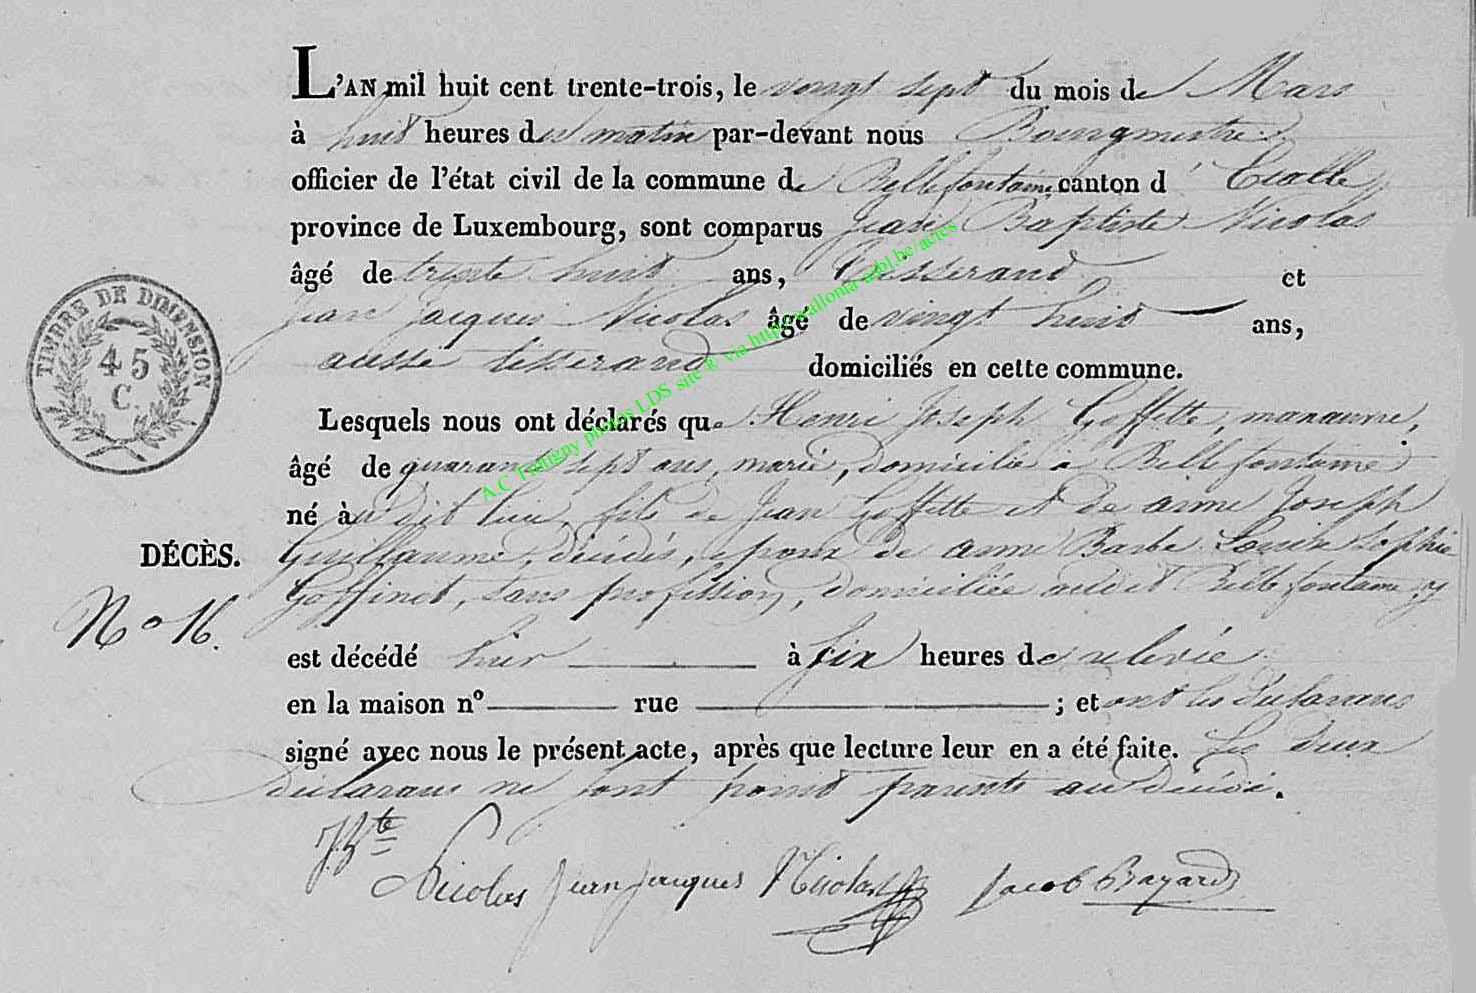 L'AN mil huit cent trente-trois, le vingt sept du mois de Mars
à huit heures du matin par-devant nous Bourgmestre
officier de l'état civil de la commune de Bellefontaine canton d' Etalle
province de Luxembourg, sont comparus Jean Baptiste Nicolas
âgé de trente huit ans, Tisserand et
jean jacques Nicolas âgé de vingt huit ans,
aussi tisserand domiciliés en cette commune.
Lesquels nous ont déclarés que Henri Joseph Goffette, manœuvre,
âgé de quarante sept ans, marié, domicilié à Bellefontaine
né au dit lieu, fils de Jean Goffette et de anne Joseph
Guillaume, décédés, époux de anne Barbe Louise Sophie
Goffinet, sans profession, domiciliée audit Bellefontaine, y
est décédé hier à six heures de relevée
en la maison nº rue ; et ont les déclarans
signé avec nous le présent acte, après que lecture leur en a été faite. Les deux
déclarans ne sont point parents au décédé.
J. Bte Nicolas jean jacques Nicolas Jacob Bayard
DÉCÈS.
Nº 16.
TIMBRE DE DIMENSION
45
C.
A.C Tintigny photos LDS site ® via http://wallonia-asbl.be/actes